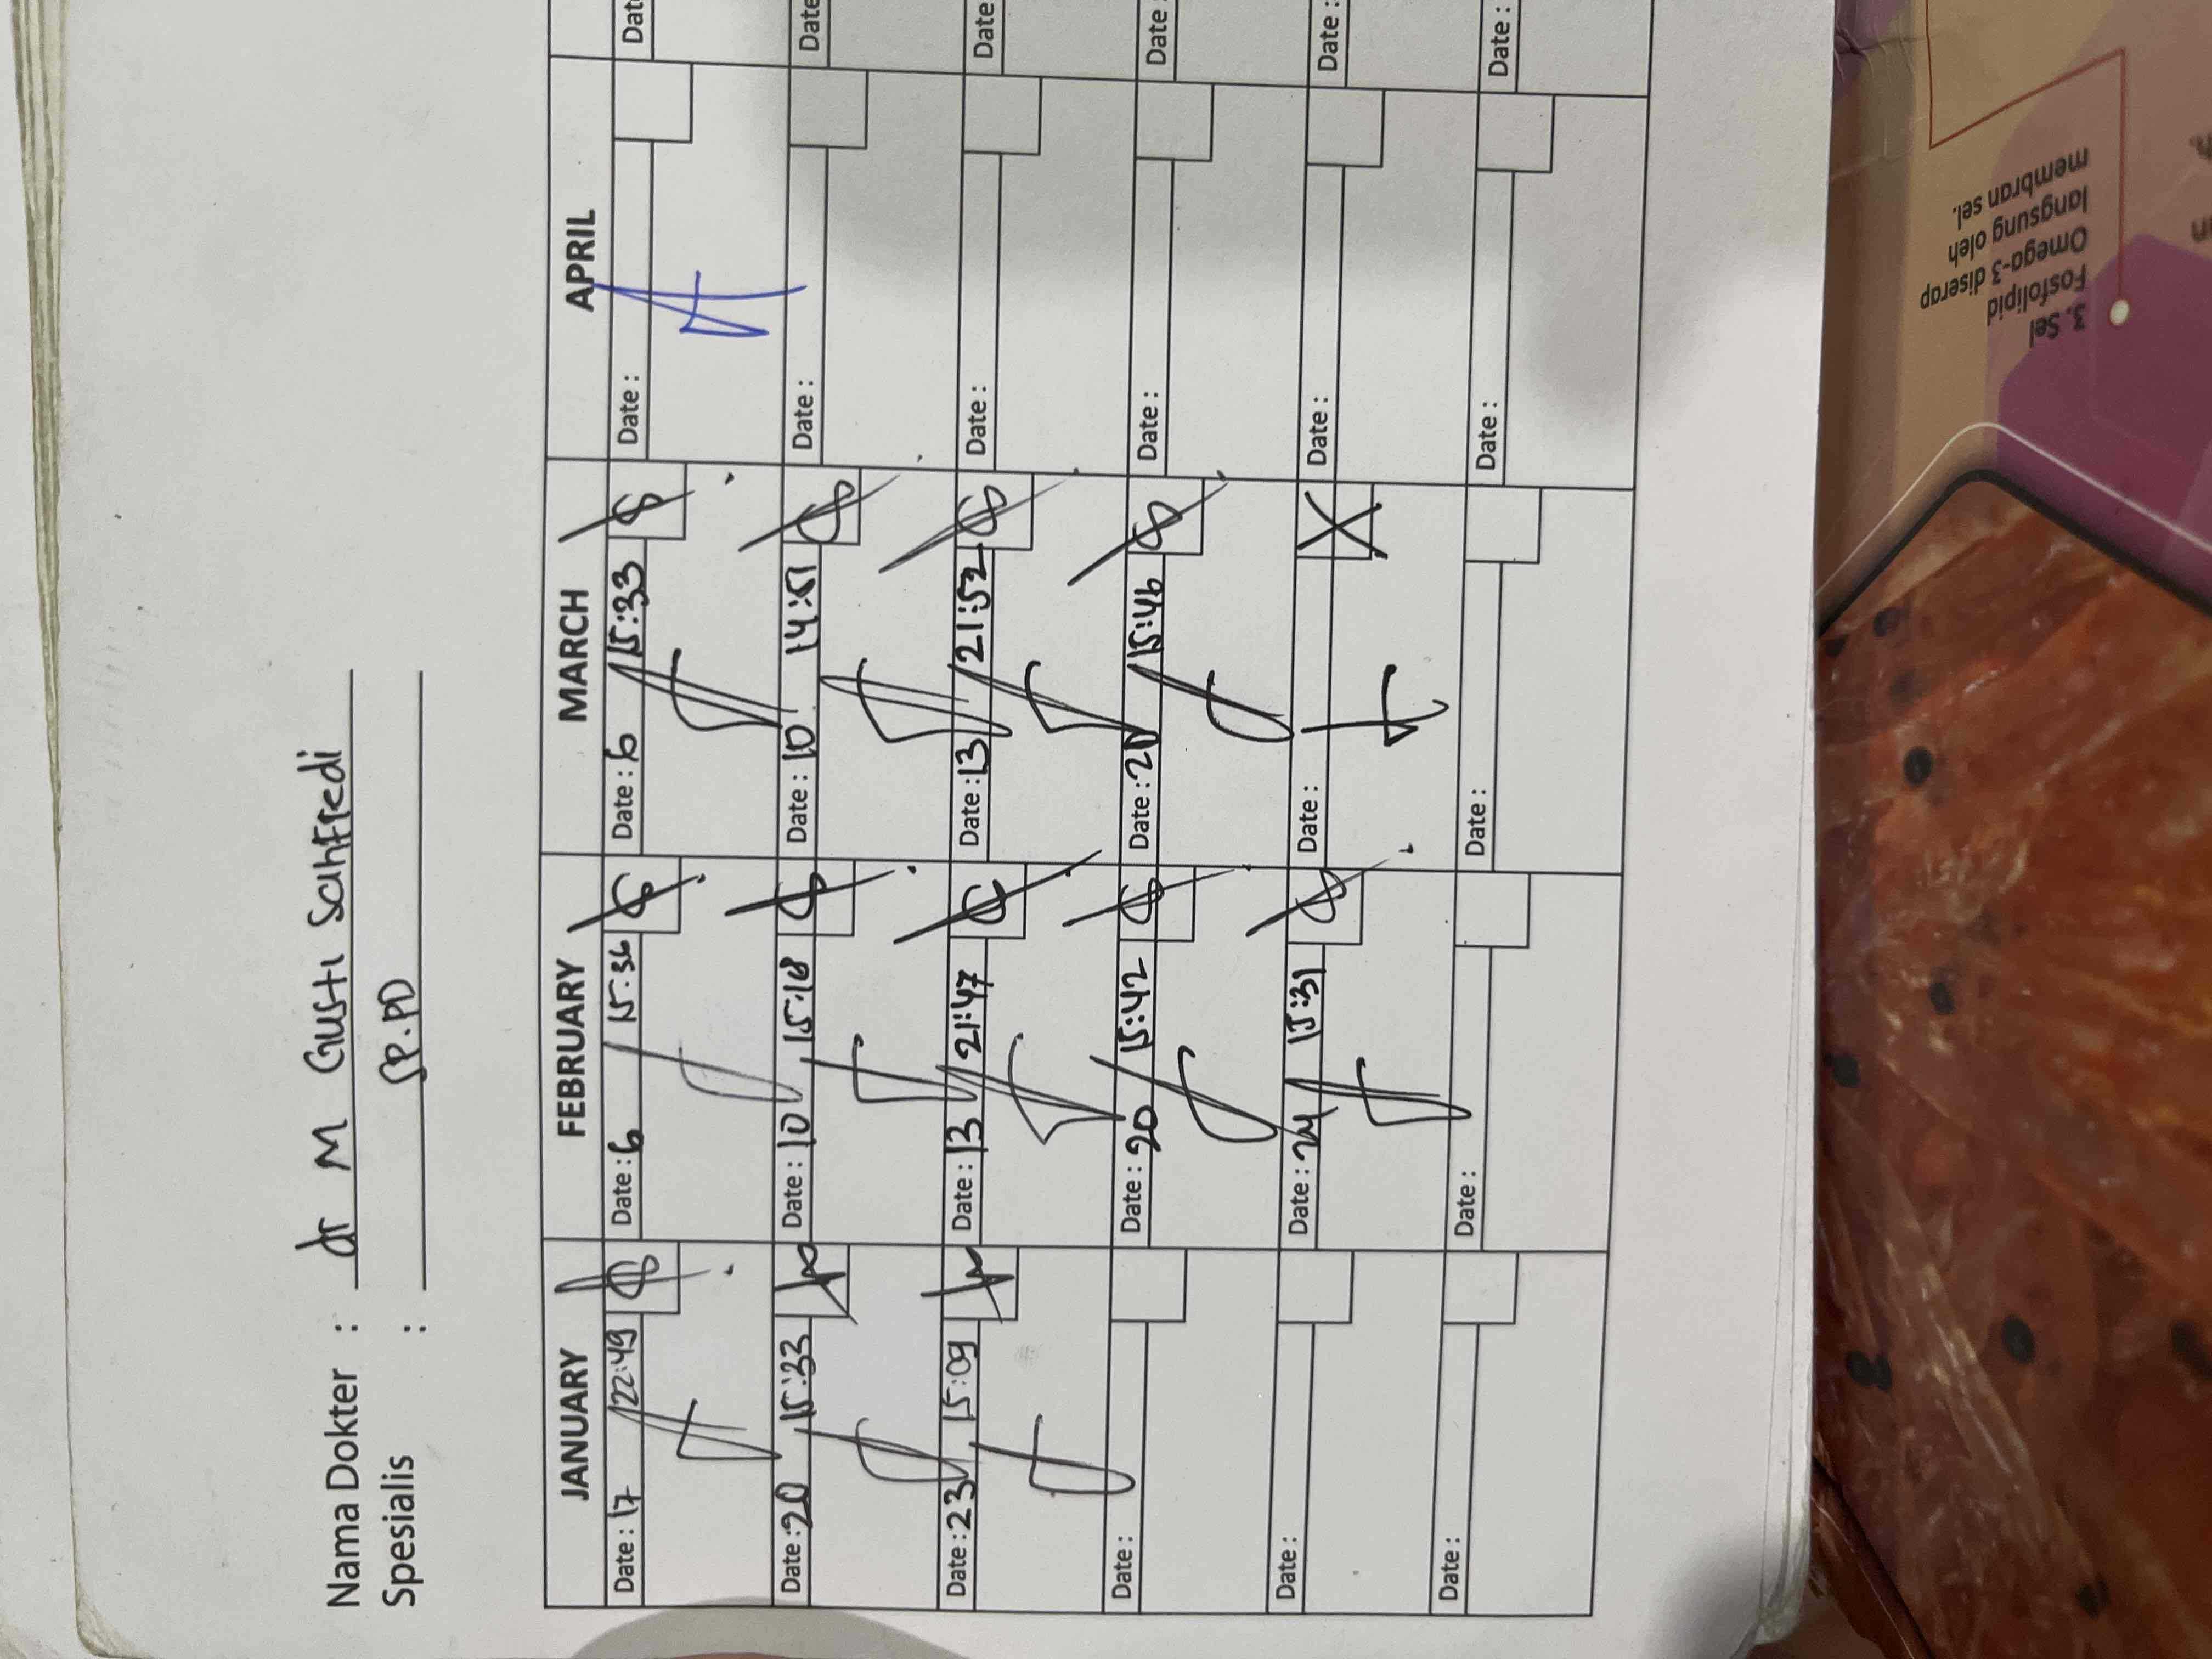 Nama Dokter : dr M Gusti Sahfredi
Spesialis : SP.PD
JANUARY FEBRUARY MARCH APRIL
Date : 17 22:49 Date : 6 15:36 Date : 6 15:33 Date : Date
Date : 20 15:33 Date : 10 15:18 Date : 10 14:51 Date : Date
Date : 23 15:09 Date : 13 21:47 Date : 13 21:52 Date : Date
Date : Date : 20 15:42 Date : 20 15:46 Date : Date :
Date : Date : 24 15:31 Date : Date : Date :
Date : Date : Date : Date : Date :
3. Sel
Fosfolipid
Omega-3 diserap
langsung oleh
membran sel.